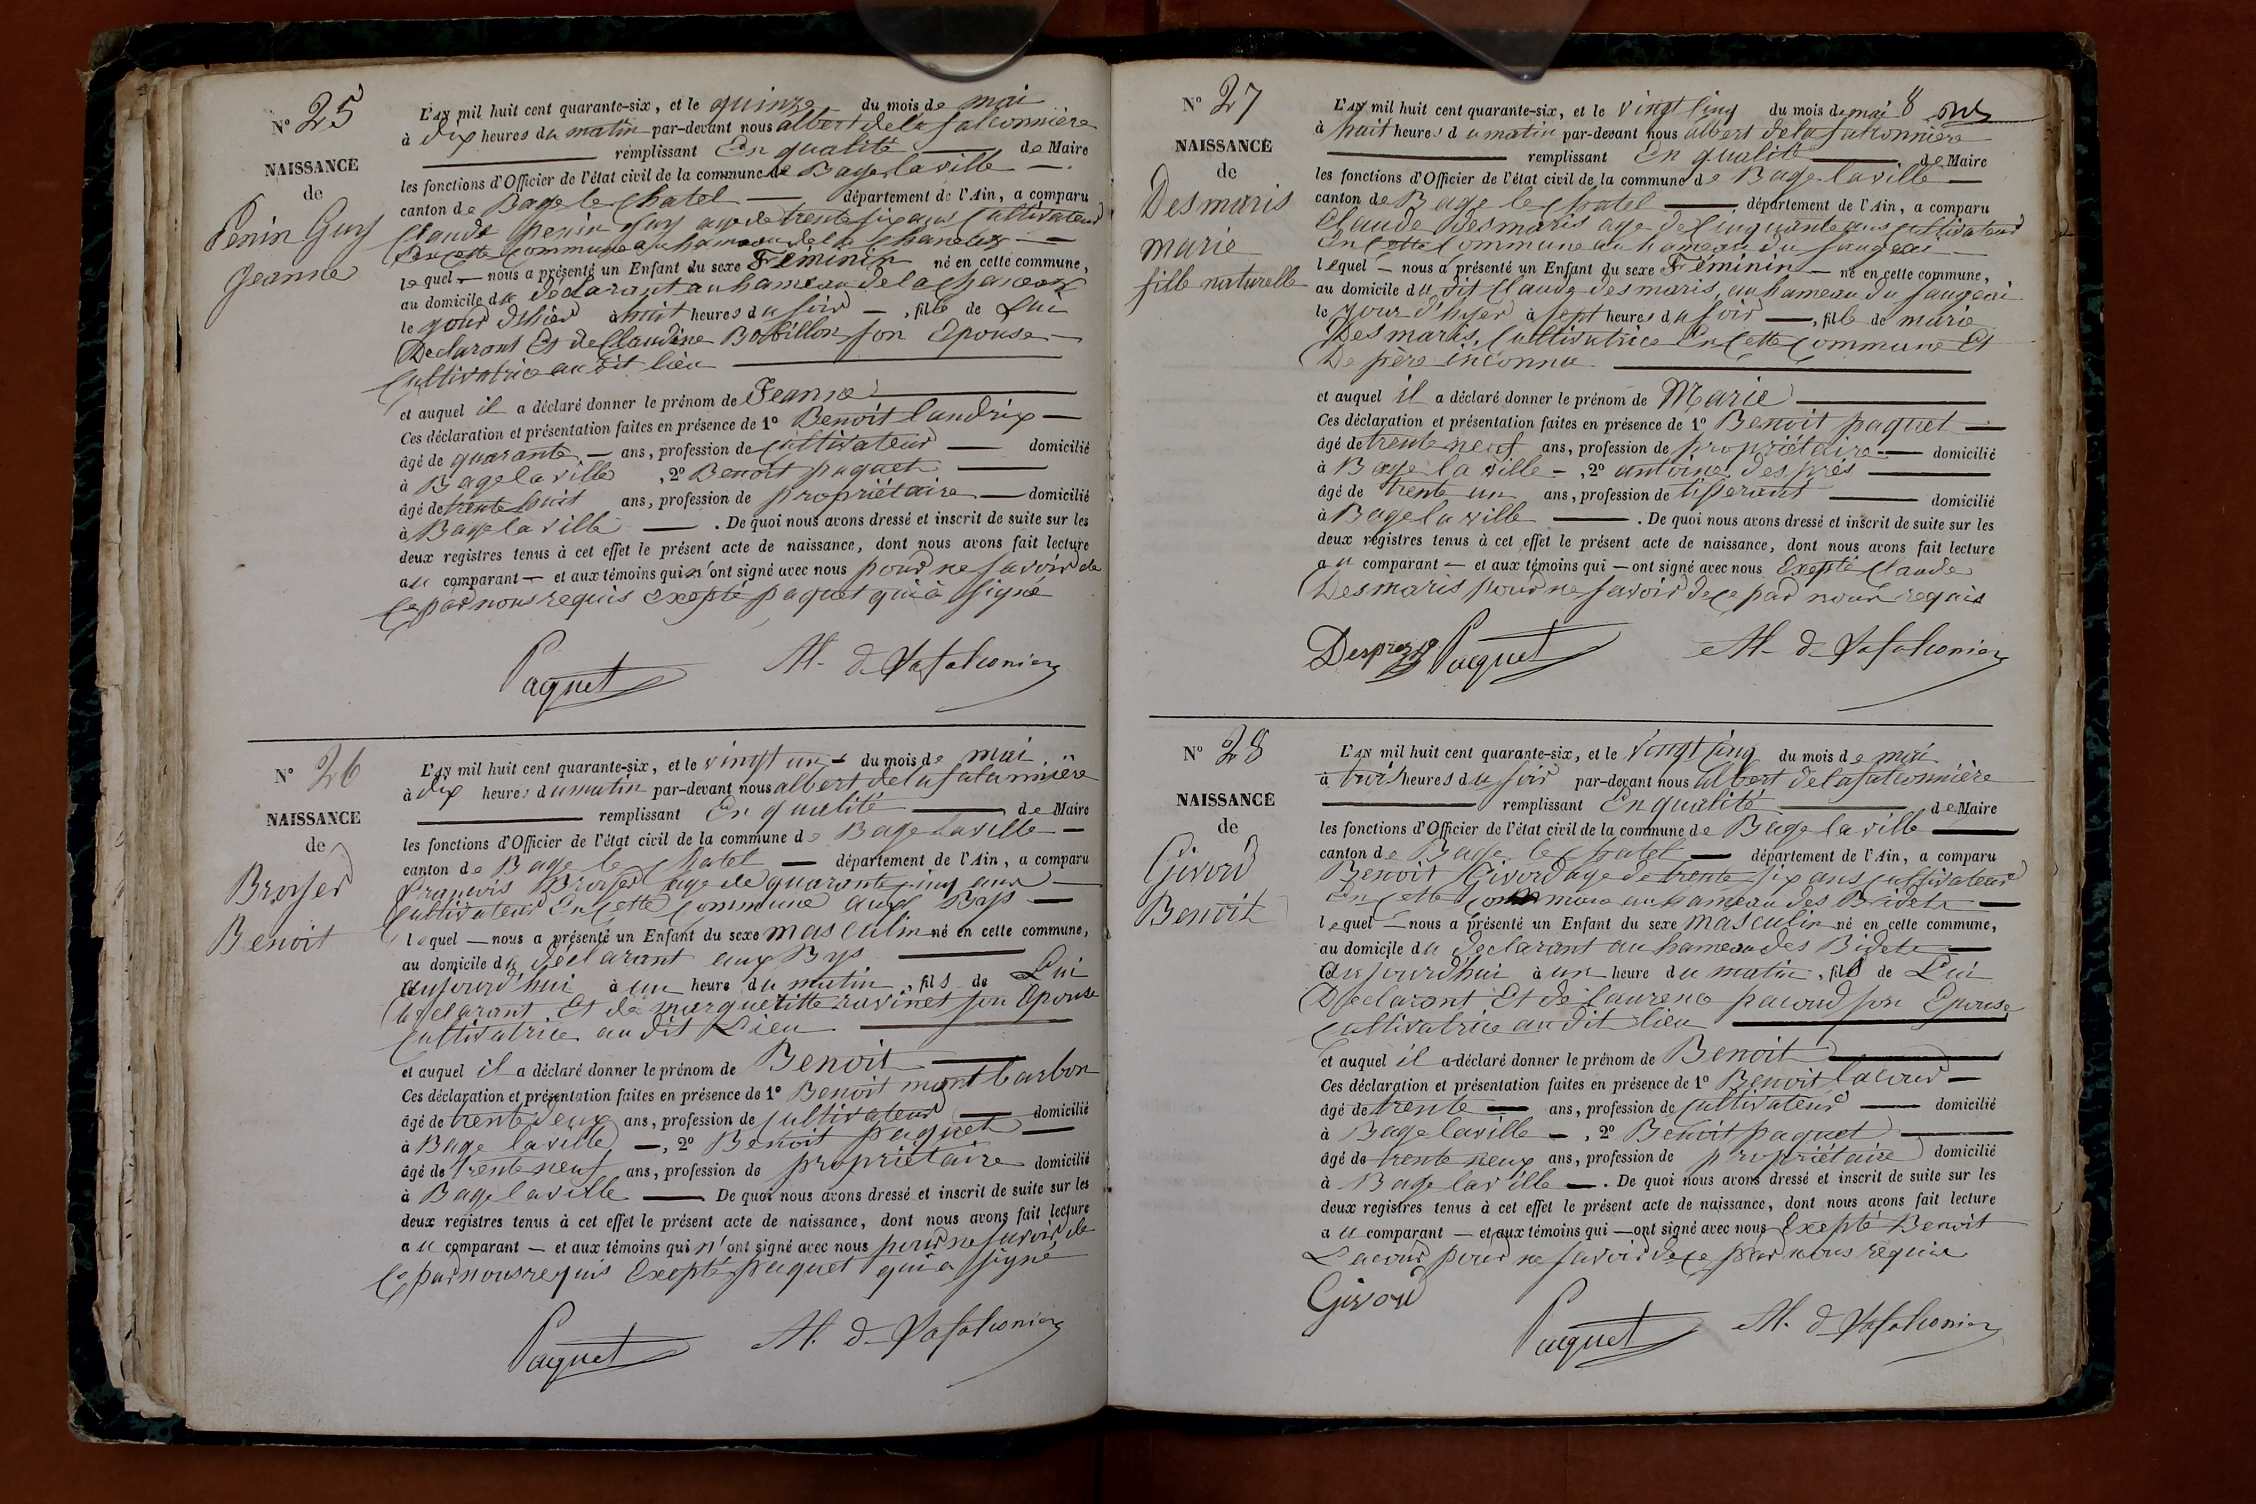 N° 25
NAISSANCE
de
Penin Guy
Jeanne
L'AN mil huit cent quarante-six, et le quinze du mois de mai
à dix heures du matin par-devant nous albert de la falconnière
remplissant En qualité de Maire
les fonctions d'Officier de l'état civil de la commune de Bage la ville
canton de Bage le Chatel département de l'Ain, a comparu
Claude penin guy age de trente six ans Cultivateur
En cette Commune au hameau de la
lequel nous a présenté un Enfant du sexe Féminin né en cette commune,
au domicile du déclarant au hameau de la
le jour d'hier à huit heures du soir, fille de Lui
Declarant Et de Claudine Bobillon son Epouse
Cultivatrice au dit lieu
et auquel il a déclaré donner le prénom de Jeanne
Ces déclaration et présentation faites en présence de 1° Benoit Landrix
âgé de quarante ans, profession de Cultivateur domicilié
à Bage la ville, 2° Benoit paquet
âgé de trente huit ans, profession de propriétaire domicilié
à Bage la ville. De quoi nous avons dressé et inscrit de suite sur les
deux registres tenus à cet effet le présent acte de naissance, dont nous avons fait lecture
au comparant et aux témoins qui n'ont signé avec nous pour ne savoir de
Ce par nous requis Exepté paquet qui à signé
Paquet Al. d Lafalconière
N° 26
NAISSANCE
de
Broyer
Benoit
L'AN mil huit cent quarante-six, et le vingt un du mois de mai
à dix heures du matin par-devant nous albert de la falconnière
remplissant En qualité de Maire
les fonctions d'Officier de l'état civil de la commune de Bage la ville
canton de Bage le Chatel département de l'Ain, a comparu
François Broyer age de quarante cinq ans
Cultivateur En cette Commune aux Bys
lequel nous a présenté un Enfant du sexe masculin né en cette commune,
au domicile du déclarant aux Bys
aujourd'hui à un heure du matin, fils de Lui
déclarant Et de margueritte ravinet son Epouse
Cultivatrice au dit Lieu
et auquel il a déclaré donner le prénom de Benoit
Ces déclaration et présentation faites en présence de 1° Benoit mont barbon
âgé de trente deux ans, profession de Cultivateur domicilié
à Bage la ville, 2° Benoit paquet
âgé de trente neuf ans, profession de propriétaire domicilié
à Bage la ville De quoi nous avons dressé et inscrit de suite sur les
deux registres tenus à cet effet le présent acte de naissance, dont nous avons fait lecture
au comparant et aux témoins qui n'ont signé avec nous pour ne savoir de
Ce par nous requis Exepté paquet qui a signé
Paquet Al. d Lafalconière
N° 27
NAISSANCE
de
Desmaris
marie
fille naturelle
L'AN mil huit cent quarante-six, et le vingt cinq du mois de mai 8
à huit heures du matin par-devant nous albert de la falconnière
remplissant En qualité de Maire
les fonctions d'Officier de l'état civil de la commune de Bage la ville
canton de Bage le Chatel département de l'Ain, a comparu
Claude Desmaris age de Cinquante ans Cultivateur
En Cette Commune au hameau du saugeai
lequel nous a présenté un Enfant du sexe Féminin né en cette commune,
au domicile du dit Claude desmaris au hameau du saugeai
le jour d'hyer à sept heures du soir, fille de marie
Desmaris, Cultivatrice En Cette Commune Et
De père inconnu
et auquel il a déclaré donner le prénom de Marie
Ces déclaration et présentation faites en présence de 1° Benoit paquet
âgé de trente neuf ans, profession de propriétaire domicilié
à Bage la ville, 2° antoine després
âgé de trente un ans, profession de tisserant domicilié
à Bage la ville. De quoi nous avons dressé et inscrit de suite sur les
deux registres tenus à cet effet le présent acte de naissance, dont nous avons fait lecture
au comparant et aux témoins qui ont signé avec nous Exepté Claude
Desmaris pour ne savoir de ce par nous requis
Desprez Paquet Al. d Lafalconière
N° 28
NAISSANCE
de
Givord
Benoit
L'AN mil huit cent quarante-six, et le vingt cinq du mois de mai
à trois heures du soir par-devant nous albert de la falconnière
remplissant En qualité de Maire
les fonctions d'Officier de l'état civil de la commune de Bage la ville
canton de Bage le Chatel département de l'Ain, a comparu
Benoit Givord age de trente six ans Cultivateur
En Cette Commune au hameau des Bidets
lequel nous a présenté un Enfant du sexe masculin né en cette commune,
au domicile du déclarant au hameau des Bidets
aujourd'hui à un heure du matin, fils de Lui
Declarant Et de Laurence pacoud son Epouse
Cultivatrice au dit lieu
et auquel il a déclaré donner le prénom de Benoit
Ces déclaration et présentation faites en présence de 1° Benoit Lacour
âgé de trente ans, profession de Cultivateur domicilié
à Bage la ville, 2° Benoit paquet
âgé de trente neux ans, profession de propriétaire domicilié
à Bage la ville. De quoi nous avons dressé et inscrit de suite sur les
deux registres tenus à cet effet le présent acte de naissance, dont nous avons fait lecture
au comparant et aux témoins qui ont signé avec nous Exepté Benoit
Lacour pour ne savoir de ce par nous requis
Givord Paquet Al. d Lafalconière